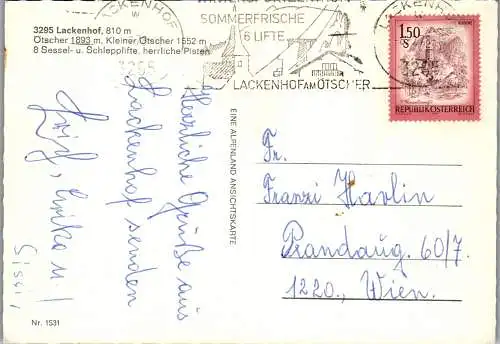 3295 Lackenhof, 810 m
Ötscher 1893 m, Kleiner Ötscher 1552 m
8 Sessel- u. Schlepplifte, herrliche Pisten
LACKENHOF
SOMMERFRISCHE
6 LIFTE
LACKENHOF AM ÖTSCHER
LACKENHOF
1,50
S
REPUBLIK ÖSTERREICH
Herzliche Grüße aus
Lackenhof senden
Erika u.
Sissi
EINE ALPENLAND ANSICHTSKARTE
Fr.
Franzi Havlin
Prandaug. 60/7
1220, Wien.
Nr. 1531